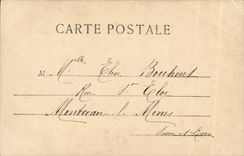 CARTE POSTALE
M Mlle Elise Bouchout
Rue St Eloi
Montceau l. Mines
Saone et Loire